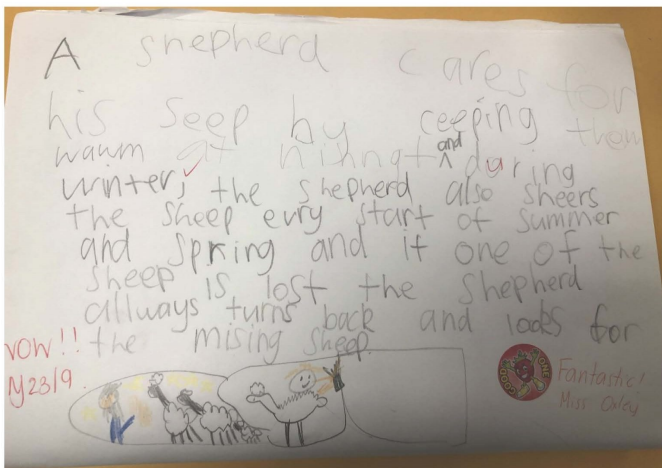 A shepherd cares for
his seep by ceeping them
wawm at nihngt and daring
winter, the shepherd also sheers
the sheep evry start of summer
and spring and if one of the
sheep is lost the shepherd
allways turns back and looks for
the mising sheep.
WOW!!
23/9
GOOD ONE
Fantastic!
Miss Oxley